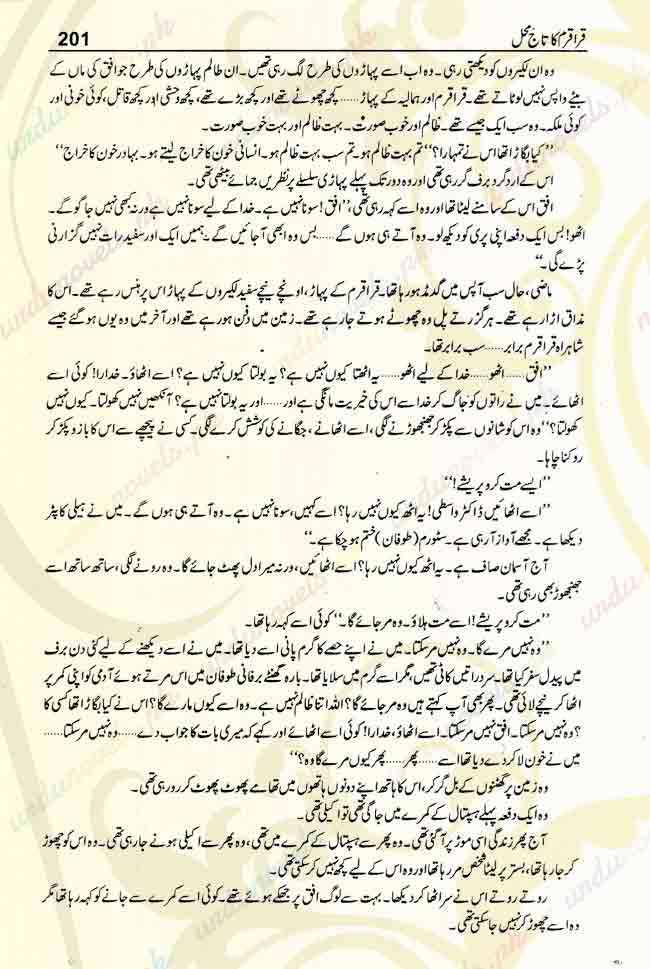 201
قراقرم کا تاج محل
وہ ان لکیروں کو دیکھتی رہی۔ وہ اب اسے پہاڑوں کی طرح لگ رہی تھیں۔ ان ظالم پہاڑوں کی طرح جو افق کی ماں کے
بیٹے واپس نہیں لوٹاتے تھے۔ قراقرم اور ہمالیہ کے پہاڑ...... کچھ چھوٹے تھے اور کچھ بڑے تھے، کچھ وحشی اور کچھ قاتل، کوئی خونی اور
کوئی ملکہ۔ وہ سب ایک جیسے تھے۔ ظالم اور خوب صورت۔ بہت ظالم اور بہت خوب صورت۔
’’کیا بگاڑا تھا اس نے تمہارا؟‘‘ تم بہت ظالم ہو۔ تم سب بہت ظالم ہو۔ انسانی خون کا خراج لیتے ہو۔ بہادر خون کا خراج‘‘
اس کے ارد گرد برف گر رہی تھی اور وہ دور تک پہلے پہاڑی سلسلے پر نظریں جمائے بیٹھی تھی۔
افق اس کے سامنے لیٹا تھا اور وہ اسے کہہ رہی تھی، ’’افق! سونا نہیں ہے۔ خدا کے لیے سونا نہیں ہے ورنہ کبھی نہیں جاگو گے۔
اٹھو! بس ایک دفعہ اپنی پری کو دیکھ لو۔ وہ آتے ہی ہوں گے...... بس وہ ابھی آ جائیں گے۔ ہمیں ایک اور سفید رات نہیں گزارنی
پڑے گی۔‘‘
ماضی، حال سب آپس میں گڈمڈ ہو رہا تھا۔ قراقرم کے پہاڑ، اونچے نیچے سفید لکیروں کے پہاڑ اس پر ہنس رہے تھے۔ اس کا
مذاق اڑا رہے تھے۔ ہر گزرتے پل وہ چھوٹے ہوتے جا رہے تھے۔ زمین میں دفن ہو رہے تھے اور آخر میں وہ یوں ہو گئے جیسے
شاہراہ قراقرم برابر...... سب برابر تھا۔
’’افق...... اٹھو...... خدا کے لیے اٹھو...... یہ اٹھتا کیوں نہیں ہے؟ یہ بولتا کیوں نہیں ہے؟ اسے اٹھاؤ۔ خدارا! کوئی اسے
اٹھائے۔ میں نے راتوں کو جاگ کر خدا سے اس کی خیریت مانگی ہے اور...... اور یہ بولتا نہیں ہے؟ آنکھیں نہیں کھولتا۔ کیوں نہیں
کھولتا؟‘‘ وہ اس کو شانوں سے پکڑ کر جھنجھوڑنے لگی، اسے اٹھانے، جگانے کی کوشش کرنے لگی۔ کسی نے پیچھے سے اس کا بازو پکڑ کر
روکنا چاہا۔
’’ایسے مت کرو پریشے!‘‘
’’اسے اٹھائیں ڈاکٹر واسطی! یہ اٹھ کیوں نہیں رہا؟ اسے کہیں، سونا نہیں ہے۔ وہ آتے ہی ہوں گے۔ میں نے ہیلی کاپٹر
دیکھا ہے۔ مجھے آواز آ رہی ہے۔ سٹورم (طوفان) ختم ہو چکا ہے۔‘‘
آج آسمان صاف ہے۔ یہ اٹھ کیوں نہیں رہا؟ اسے اٹھائیں، ورنہ میرا دل پھٹ جائے گا۔ وہ رونے لگی، ساتھ ساتھ اسے
جھنجھوڑ بھی رہی تھی۔
’’مت کرو پریشے! اسے مت ہلاؤ۔ وہ مر جائے گا۔‘‘ کوئی اسے کہہ رہا تھا۔
’’وہ نہیں مرے گا۔ وہ نہیں مر سکتا۔ میں نے اپنے حصے کا گرم پانی اسے دیا تھا۔ میں نے اسے دیکھنے کے لیے کئی دن برف
میں پیدل سفر کیا تھا۔ سرد راتیں کاٹی تھیں، مگر اسے گرم میں سلایا تھا۔ بارہ گھنٹے برفانی طوفان میں اس مرتے ہوئے آدمی کو اپنی کمر پر
اٹھا کر نیچے لائی تھی۔ پھر بھی آپ کہتے ہیں وہ مر جائے گا؟ اللہ اتنا ظالم نہیں ہے۔ وہ اسے کیوں مارے گا؟ اس نے کیا بگاڑا تھا کسی کا
؟ وہ نہیں مر سکتا۔ افق نہیں مر سکتا۔ اسے اٹھاؤ، خدارا! کوئی اسے اٹھائے اور کہے کہ میری بات کا جواب دے...... وہ نہیں مر سکتا......
میں نے خون لا کر دے دیا تھا اسے...... پھر...... پھر کیوں مرے گا وہ؟‘‘
وہ زمین پر گھٹنوں کے بل گر کر، اس کا ہاتھ اپنے دونوں ہاتھوں میں تھامے پھوٹ پھوٹ کر رو رہی تھی۔
وہ ایک دفعہ پہلے ہسپتال کے کمرے میں جاگی تھی تو اکیلی تھی۔
آج پھر زندگی اسی موڑ پر آ گئی تھی۔ وہ پھر سے ہسپتال کے کمرے میں تھی، وہ پھر سے اکیلی ہونے جا رہی تھی۔ وہ اس کو چھوڑ
کر جا رہا تھا، بستر پر لیٹا شخص مر رہا تھا اور وہ اس کے لیے کچھ نہیں کر سکتی تھی۔
روتے روتے اس نے سر اٹھا کر دیکھا۔ بہت سے لوگ افق پر جھکے ہوئے تھے۔ کوئی اسے کمرے سے جانے کو کہہ رہا تھا مگر
وہ اسے چھوڑ کر نہیں جا سکتی تھی۔